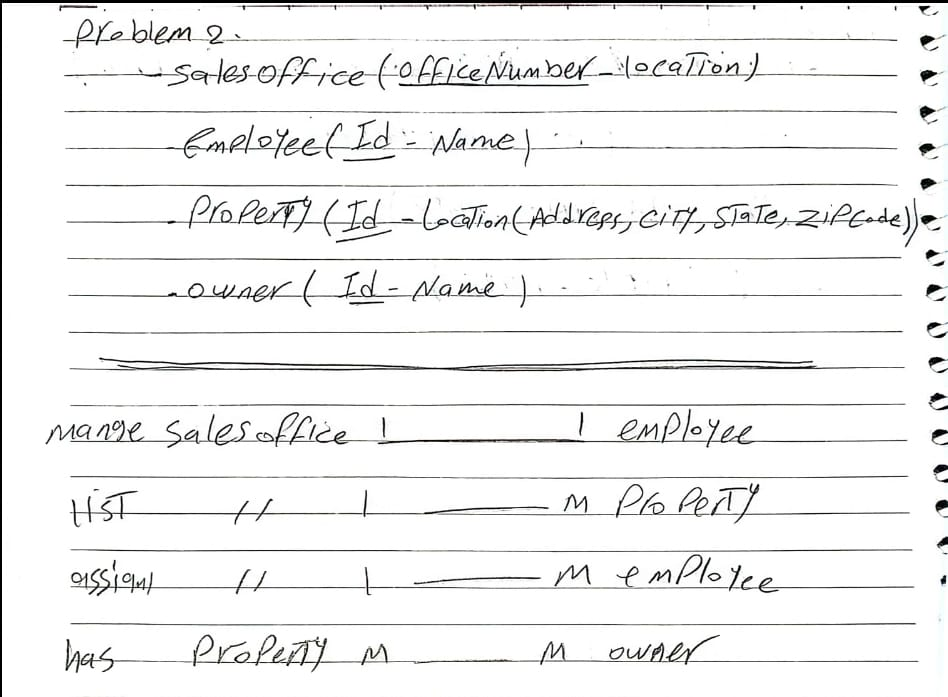 Problem 2.
- Sales office (officeNumber - location)
- Employee ( Id - Name )
- Property ( Id - Location ( Address, City, State, ZipCode ))
- owner ( Id - Name ).
mange sales office 1 1 employee
List // 1 M Property
assign // 1 M employee
has Property M M owner